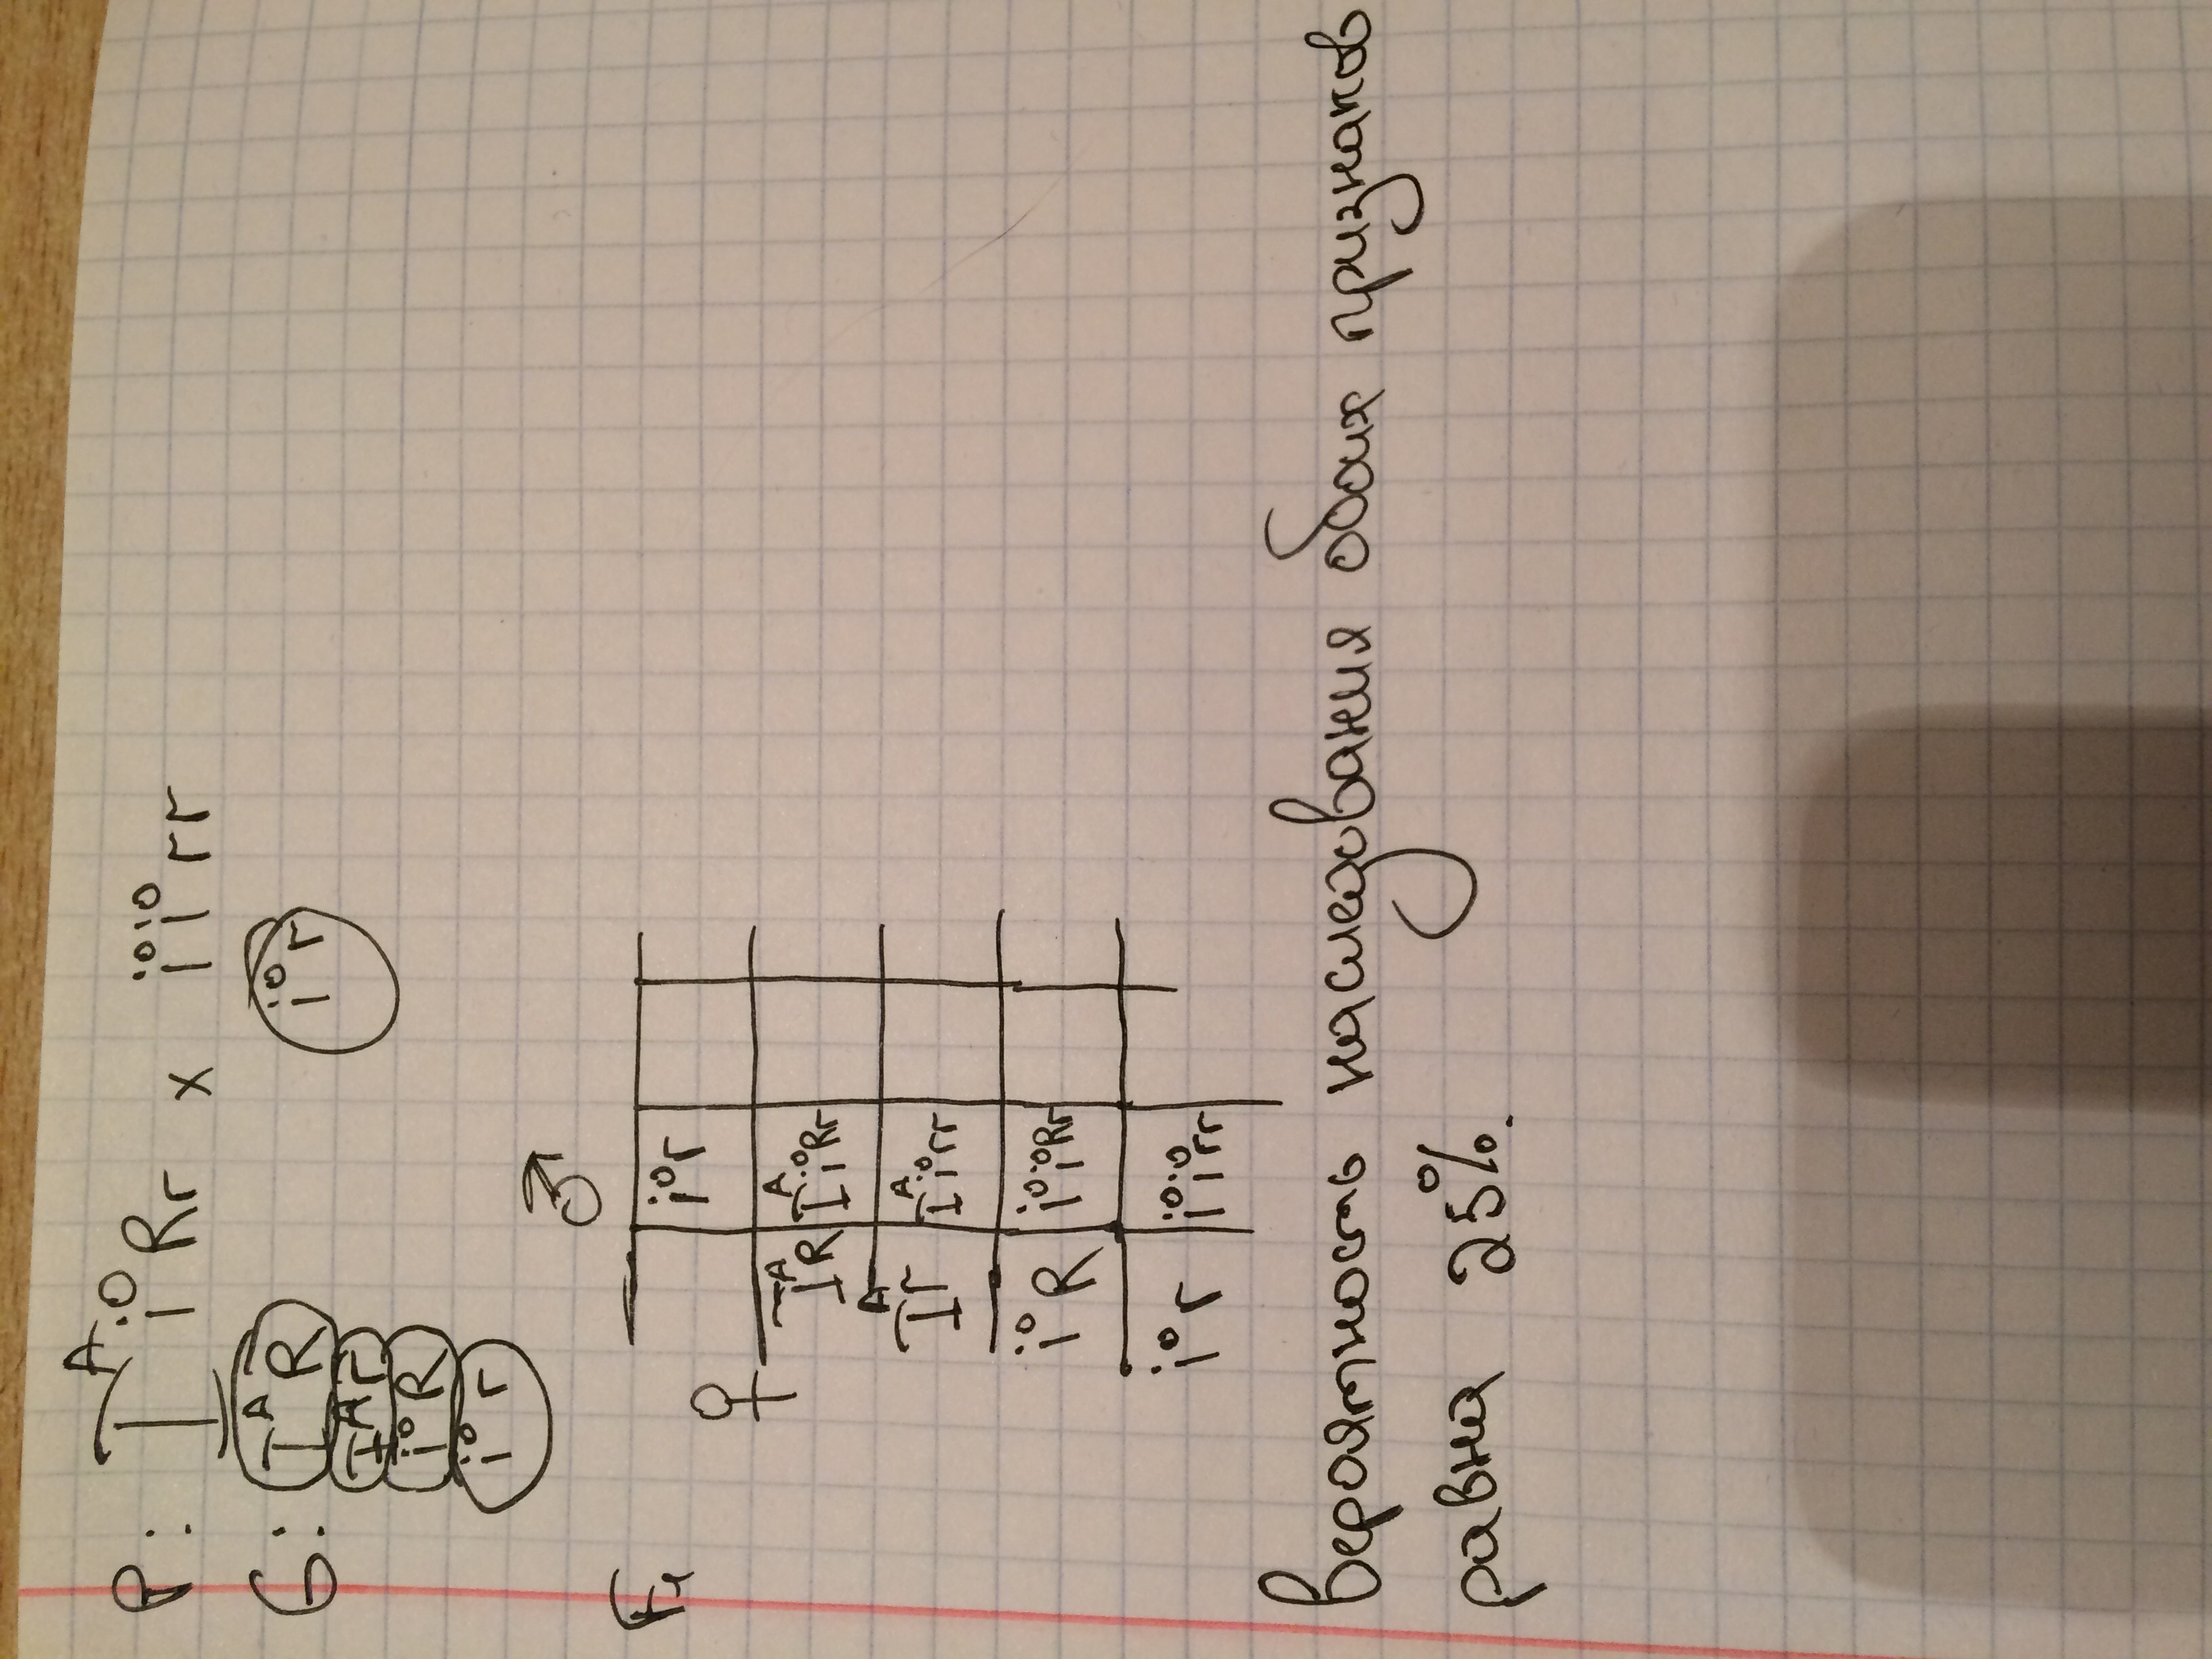 P: I^A i^0 Rr x i^0 i^0 rr
G: I^A R i^0 r
I^A r
i^0 R
i^0 r
♂
F1 i^0 r
♀ I^A R I^A i^0 Rr
I^A r I^A i^0 rr
i^0 R i^0 i^0 Rr
i^0 r i^0 i^0 rr
Вероятность наследования обоих признаков
равна 25%.